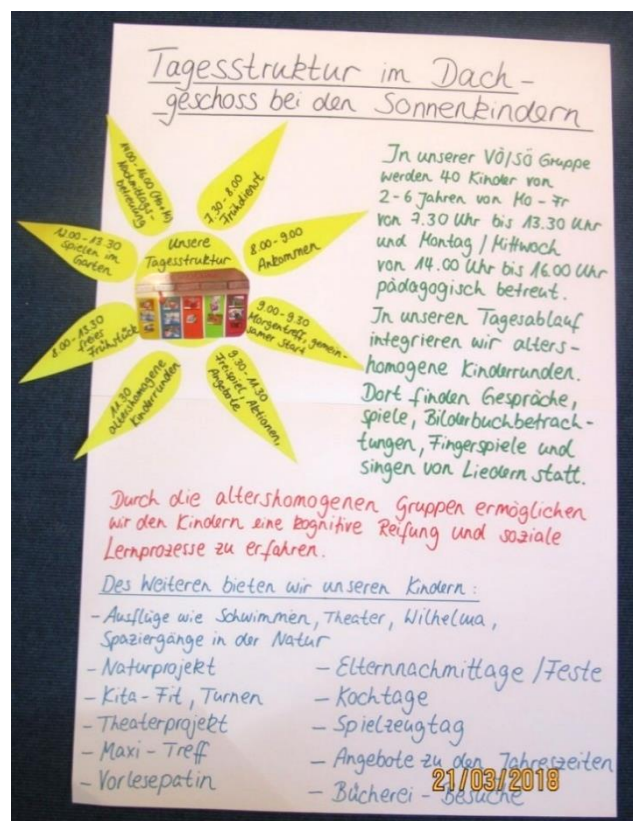 Tagesstruktur im Dach-
geschoss bei den Sonnenkindern
Unsere
Tagesstruktur
7.30 - 8.00
Frühdienst
8.00 - 9.00
Ankommen
9.00 - 9.30
Morgentreff, gemein-
samer Start
9.30 - 11.30
Freispiel, Aktionen,
Angebote
11.30
altershomogene
Kinderrunden
8.00 - 13.30
freies
Frühstück
12.00 - 13.30
spielen im
Garten
14.00 - 16.00 (Mo + Mi)
Nachmittags-
betreuung
In unserer VÖ/SÖ Gruppe
werden 40 Kinder von
2-6 Jahren von Mo - Fr
von 7.30 Uhr bis 13.30 Uhr
und Montag / Mittwoch
von 14.00 Uhr bis 16.00 Uhr
pädagogisch betreut.
In unseren Tagesablauf
integrieren wir alters-
homogene Kinderrunden.
Dort finden Gespräche,
spiele, Bilderbuchbetrach-
tungen, Fingerspiele und
singen von Liedern statt.
Durch die altershomogenen Gruppen ermöglichen
wir den Kindern eine kognitive Reifung und soziale
Lernprozesse zu erfahren.
Des Weiteren bieten wir unseren Kindern:
- Ausflüge wie Schwimmen, Theater, Wilhelma,
Spaziergänge in der Natur
- Naturprojekt
- Kita-Fit, Turnen
- Theaterprojekt
- Maxi-Treff
- Vorlesepatin
- Elternnachmittage / Feste
- Kochtage
- Spielzeugtag
- Angebote zu den Jahreszeiten
- Bücherei - Besuche
21/03/2018